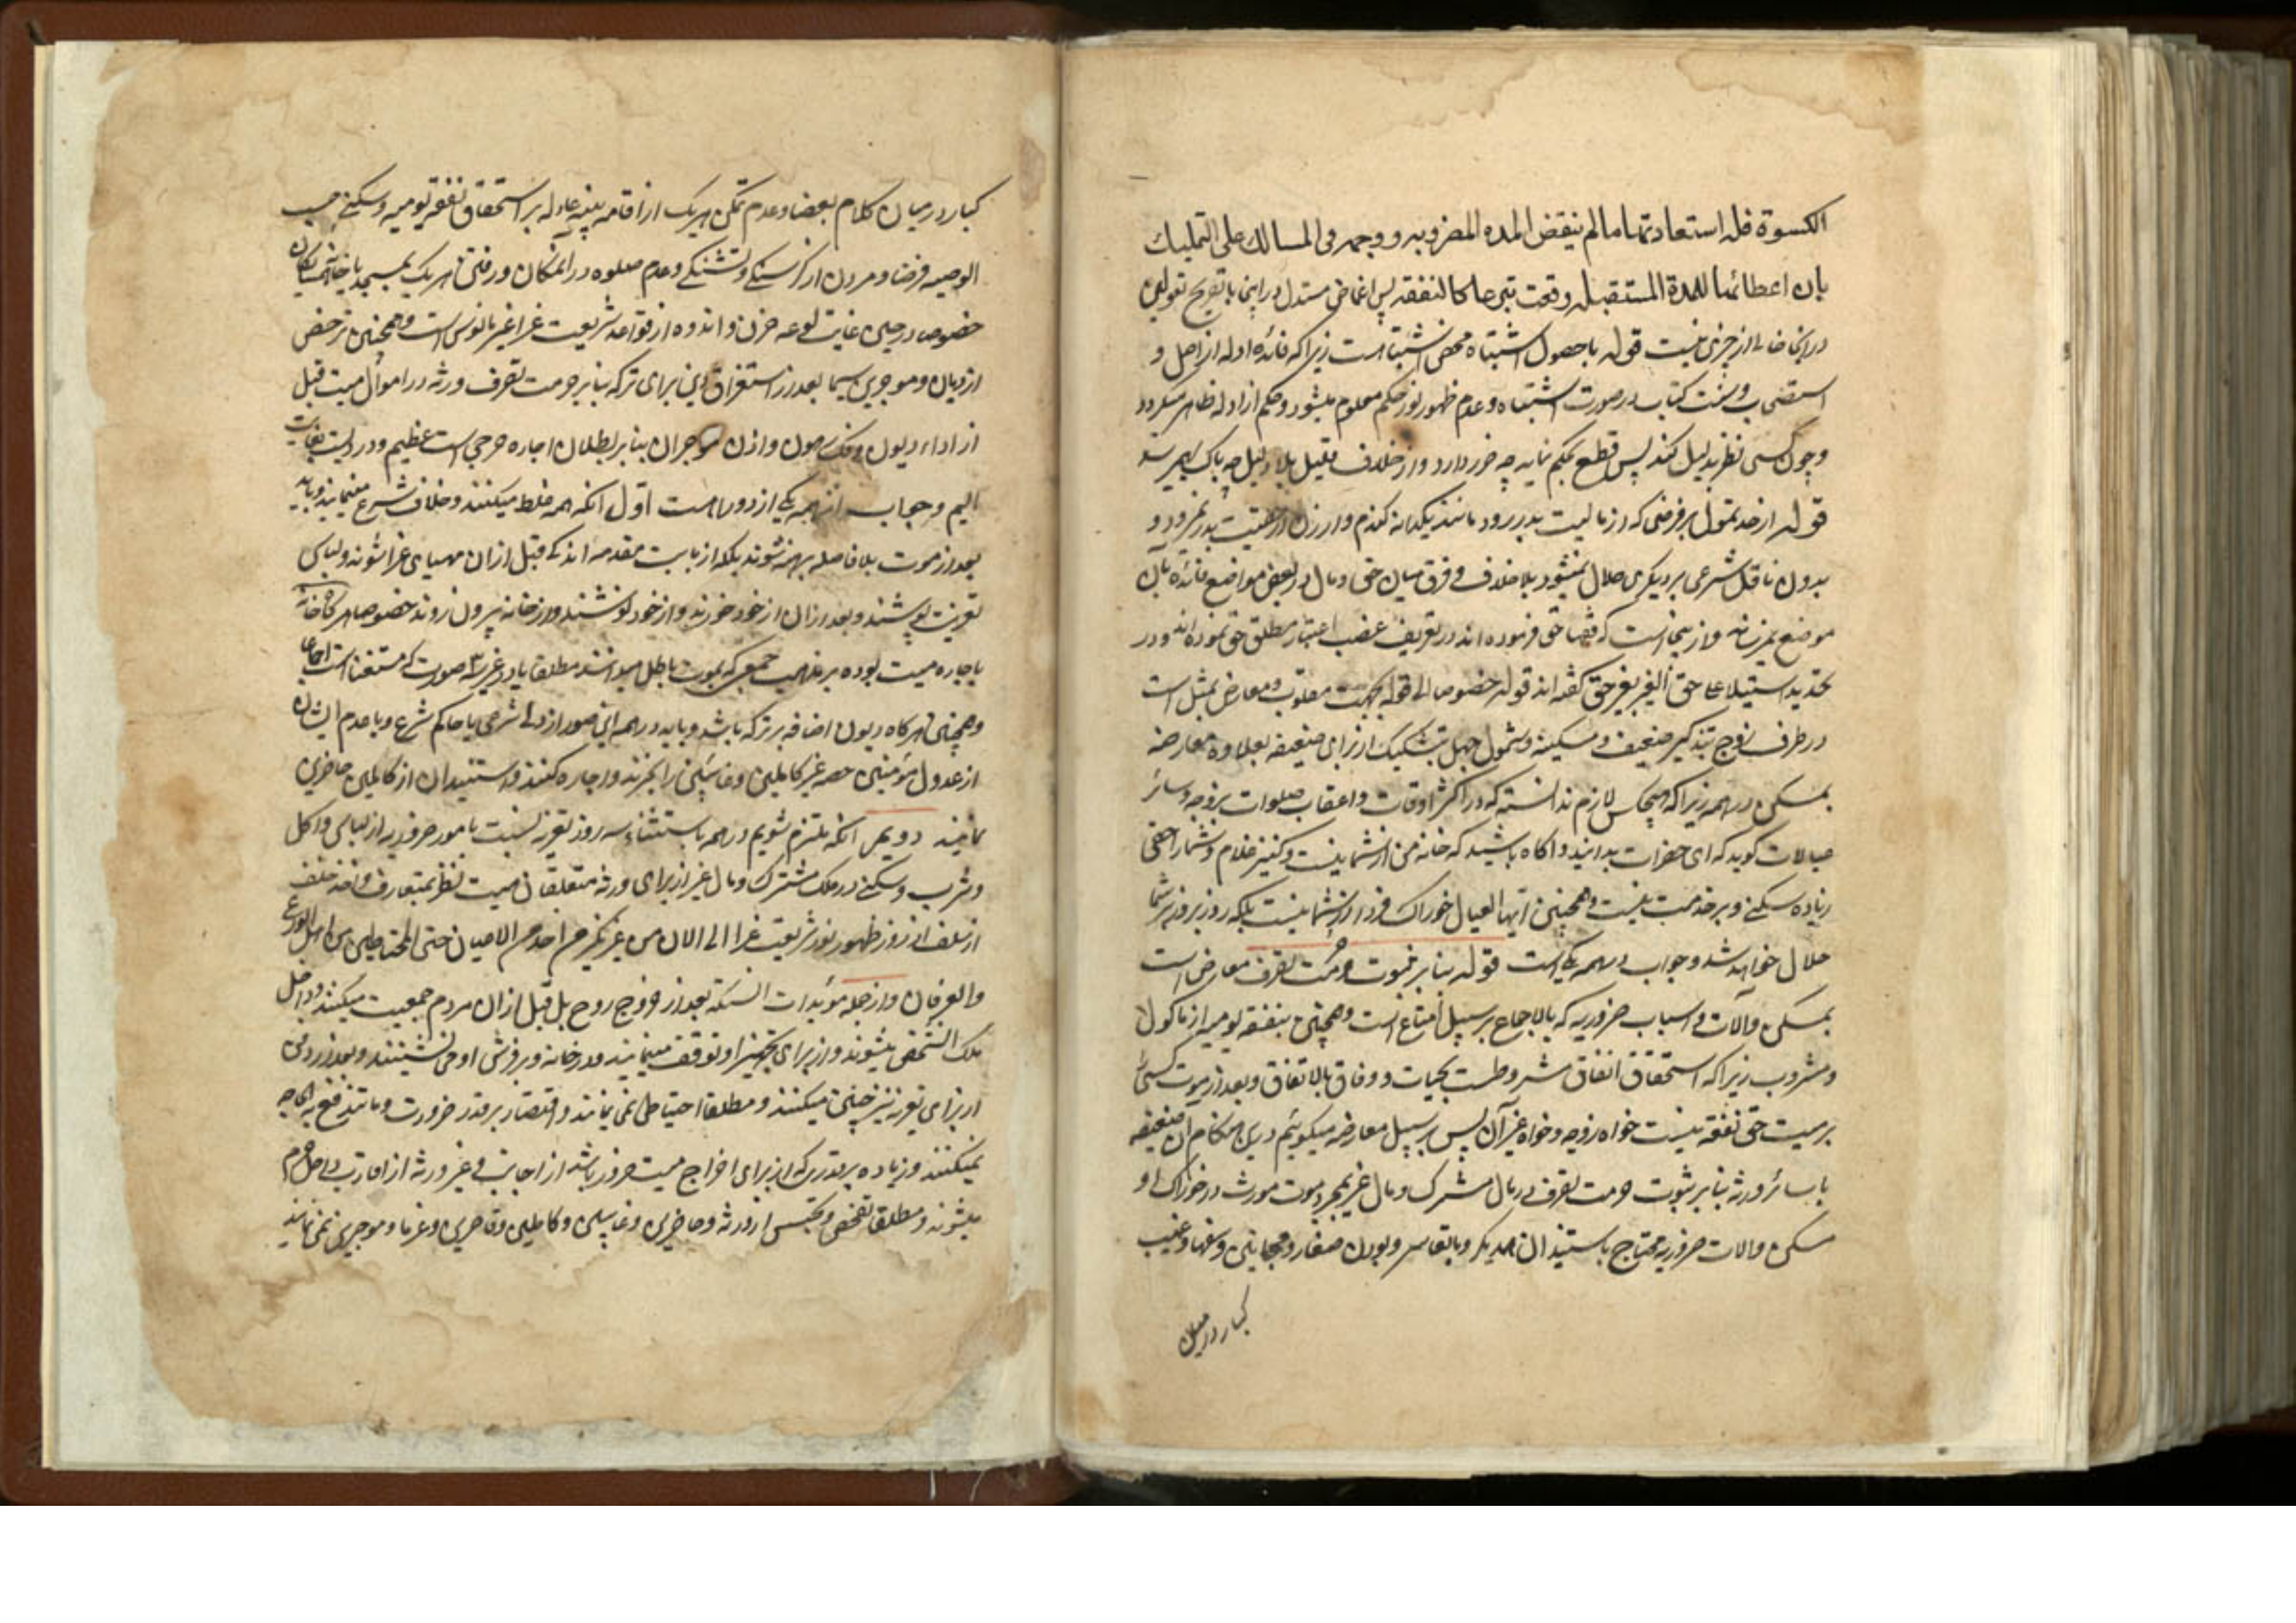 الکسوة فله استعادتها ما لم ینقض المده المضروبه و وجهه فی المسالک علی التملیک
بان اعطائها للمدة المستقبله وقعت تبرعا کالنفقه پس اغماض مستدل در اینجا با تصریح بقولین
در اینجا خالی از چیزی نیست قوله با حصول اشتباه محض اشتباه است زیرا که فائده ادله از اصل و
استصحاب و سنت کتاب در صورت اشتباه و عدم ظهور نور حکم معلوم میشود و حکم از ادله ظاهر میگردد
و چون کسی نظر بدلیل کند پس قطع بحکم نماید چه ضرر دارد و از خلاف قلیل بلا دلیل چه باک
قوله از حد تمول بر فرضی که از مالیت بدر رود مانند یکدانه گندم و ارزن از حقیت بدر نمیرود و
بدون ناقل شرعی بر دیگری حلال نمیشود بلا خلاف و فرق میان حق و مال در بعض مواضع فائده بآن
موضع نمیرساند و از اینجا است که فقها حق فرموده اند در تعریف غصب اعتبار مطلق حق نموده اند و در
تحدید استیلا علی حق الغیر بغیر حق گفته اند قوله خصوصا الی قوله بجهت مقلوب و معارض بمثل است
در طرف زوج بتذکیر ضعیف و مسکینه و شمول جهل بتشکیک از برای ضعیفه بعلاوه معارضه
بمسکن در همه زیرا که هیچکس لازم ندانسته که در اکثر اوقات و اعقاب صلوات بزوجه و سائر
عیالات گوید که ای حضرات بدانید و اگاه باشید که خانه من از شما نیست و کنیز غلام و شما را حقی
زیاده سکنی و بر خدمت نیست و همچنین ایها العیال خوراک فردا از شما نیست بلکه روز بروز بر شما
حلال خواهد شد و جواب همه یکی است قوله بنا بر ثبوت حرمت تصرف معارض است
بمسکن و آلات و اسباب ضروریه که بالاجماع بر سبیل امتاع است و همچنین بنفقه یومیه از ماکول
و مشروب زیرا که استحقاق انفاق مشروطست بحیات و وفاق بالاتفاق و بعد از موت کسی را
بر میت حق نفقه نیست خواه زوجه و خواه غیر آن پس بر سبیل معارضه میگوئیم درین هنگام آن ضعیفه
با سائر ورثه بنا بر ثبوت حرمت تصرف در مال مشترک و مال غیر بمجرد موت مورث در خوراک او
مسکن و الات ضروریه محتاج باستیذان از همدیگر و با تقاسم و بودن صغار و مجانین و سفها و غیب
کبار در میان
کبار در میان کلام بعضا و عدم تمکن هر یک از اقامه بینه عادله بر استحقاق نفقه یومیه و سکنی حسب
الوصیه فرضا و مردن از گرسنگی و تشنگی و عدم صلوه در آنمکان و رفتن هر یک بمسجد یا خانه همسایکان
خصوص در حین غایت لوعه حزن و اندوه از قواعد شریعت غرا غیر مانوس است و همچنین ترخص
از دیان و موجرین سیما بعد از استغراق دین برای ترکه بنا بر حرمت تصرف ورثه در اموال میت قبل
از اداء دیون و فک رهون و اذن موجران بنا بر بطلان اجاره حرجی است عظیم و در دیست بغایت
الیم و جواب از همه یکی از دو راه است اول آنکه همه غلط میکنند و خلاف شرع مینمایند و باید
بعد از موت بلا فاصله برهنه شوند بلکه از بابت مقدمه اندکی قبل ازان مهیای عزا شوند و لباس
تعزیت پوشند و بعد ازان از خود خورند و از خود نوشند و از خانه بیرون روند خصوصا هرگاه خانه
باجاره میت بوده بر مذهب جمعی که بموت باطل میدانند مطلقا یا در غیر سه صورت که مستثنا است اجماعا
و همچنین هرگاه دیون اضافه بر ترکه باشد و باید در همه این صور از ولی شرعی یا حاکم شرع و با عدم ایشان
از عدول مؤمنین حصه غیر کاملین و غائبین را بخرند و اجاره کنند و استیذان از کاملین حاضرین
نمایند دویم آنکه ملتزم شویم در همه باستثناء سه روز تعزیه نسبت بامور ضروریه از لباس و اکل
و شرب و سکنی در ملک مشترک و مال غیر از برای ورثه متعلقان میت نظر بمتعارف و اخذ خلف
از سلف از روز ظهور نور شریعت غرا الی الان من غیر نکیر من احد من الاعیان حتی المحتاطین من اهل الورع
و العرفان و از جمله مؤیدات انستکه بعد از خروج روح بل قبل ازان مردم جمعیت میکنند و داخل
ملک الشخص میشوند و از برای تجهیز او توقف مینمایند و در خانه و بر فرش او می نشینند و بعد از دفن
از برای تعزیه نیز چنین میکنند و مطلقا احتیاطی نمی نمایند و اقتصار بر قدر ضرورت و ما تندفع به الحاجه
نمیکنند و زیاده بر قدری که از برای اخراج میت ضرور باشد از اجانب و غیر ورثه از اقارب داخل حرم
میشوند و مطلقا تفحص و تجسس از ورثه و حاضرین و غائبین و کاملین و قاصرین و غرما و موجرین نمی نمایند